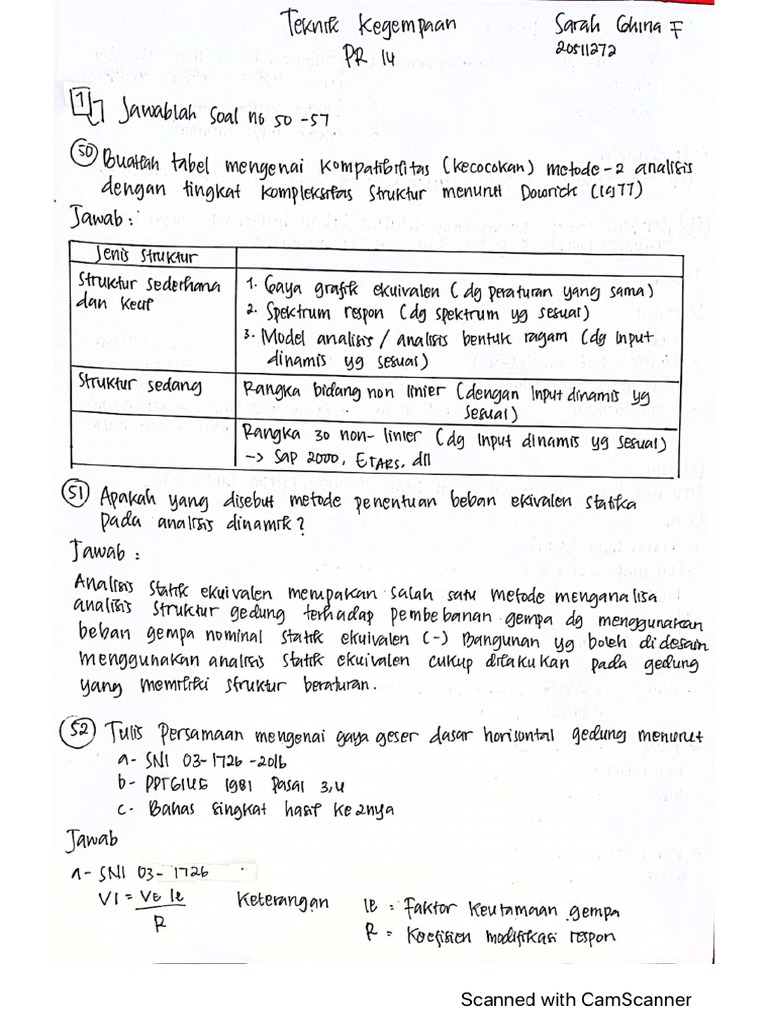 Teknik Kegempaan
PR 14
Sarah Ghina F
20511272
1 Jawablah Soal no 50 -57
50 Buatlah tabel mengenai kompatibilitas (kecocokan) metode-2 analisis
dengan tingkat kompleksitas struktur menurut Dowrick (1977)
Jawab :
Jenis Struktur
Struktur sederhana
dan kecil
1. Gaya grafik ekuivalen (dg peraturan yang sama)
2. Spektrum respon (dg spektrum yg sesuai)
3. Model analisis / analisis bentuk ragam (dg input
dinamis yg sesuai)
Struktur sedang
Rangka bidang non linier (dengan input dinamis yg
sesuai)
Rangka 3D non-linier (dg input dinamis yg sesuai)
-> Sap 2000, ETABS, dll
51 Apakah yang disebut metode penentuan beban ekivalen statika
pada analisis dinamik?
Jawab :
Analisis statik ekuivalen merupakan salah satu metode menganalisa
analisis struktur gedung terhadap pembebanan gempa dg menggunakan
beban gempa nominal statik ekuivalen (-) Bangunan yg boleh didesain
menggunakan analisis statik ekuivalen cukup dilakukan pada gedung
yang memiliki struktur beraturan.
52 Tulis Persamaan mengenai gaya geser dasar horisontal gedung menurut
a- SNI 03-1726-2016
b- PPTGIUG 1981 Pasal 3,4
c- Bahas singkat hasil ke2nya
Jawab
a- SNI 03- 1726
V1 = VE Ie
R
Keterangan
Ie = Faktor Keutamaan gempa
R = Koefisien modifikasi respon
Scanned with CamScanner